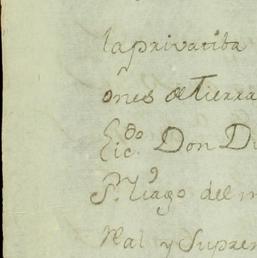 la privativa
ones de tierra
Lic.do Don D
S.n Tiago del m
Real y Suprem